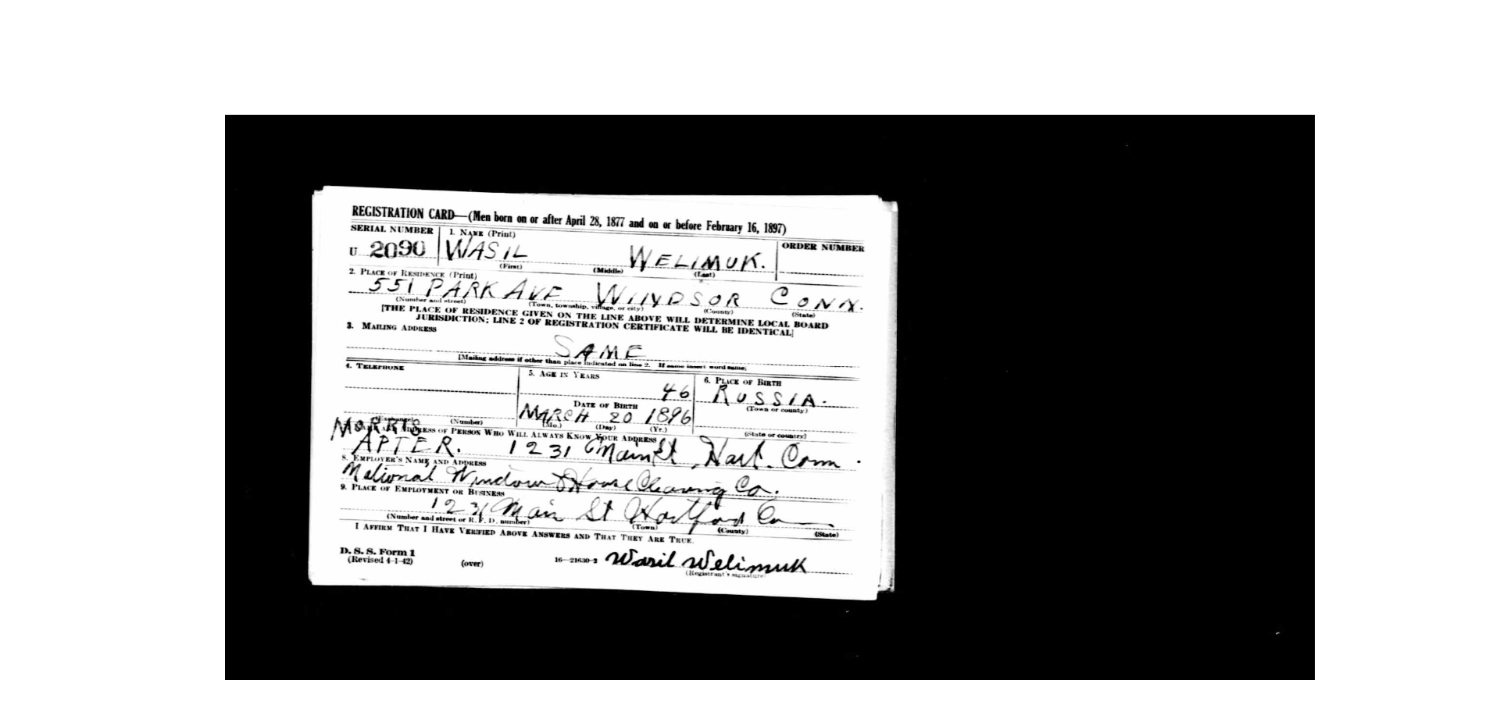 REGISTRATION CARD—(Men born on or after April 28, 1877 and on or before February 16, 1897)
SERIAL NUMBER 1. NAME (Print) ORDER NUMBER
U 2090 WASIL WELIMUK.
(First) (Middle) (Last)
2. PLACE OF RESIDENCE (Print)
551 PARK AVE WINDSOR CONN.
(Number and street) (Town, township, village, or city) (County) (State)
[THE PLACE OF RESIDENCE GIVEN ON THE LINE ABOVE WILL DETERMINE LOCAL BOARD
JURISDICTION; LINE 2 OF REGISTRATION CERTIFICATE WILL BE IDENTICAL]
3. MAILING ADDRESS
SAME
[Mailing address if other than place indicated on line 2. If same insert word same]
4. TELEPHONE 5. AGE IN YEARS 6. PLACE OF BIRTH
46 RUSSIA.
DATE OF BIRTH (Town or county)
MARCH 20 1896
(Number) (Mo.) (Day) (Yr.) (State or country)
MORRIS ADDRESS OF PERSON WHO WILL ALWAYS KNOW YOUR ADDRESS
APTER. 1231 Main St, Hart. Conn.
8. EMPLOYER'S NAME AND ADDRESS
National Window & House Cleaning Co.
9. PLACE OF EMPLOYMENT OR BUSINESS
1231 Main St Hartford Co
(Number and street or R. F. D. number) (Town) (County) (State)
I AFFIRM THAT I HAVE VERIFIED ABOVE ANSWERS AND THAT THEY ARE TRUE.
D. S. S. Form 1
(Revised 4-1-42) (over) 16—21630-2 Wasil Welimuk
(Registrant's signature)